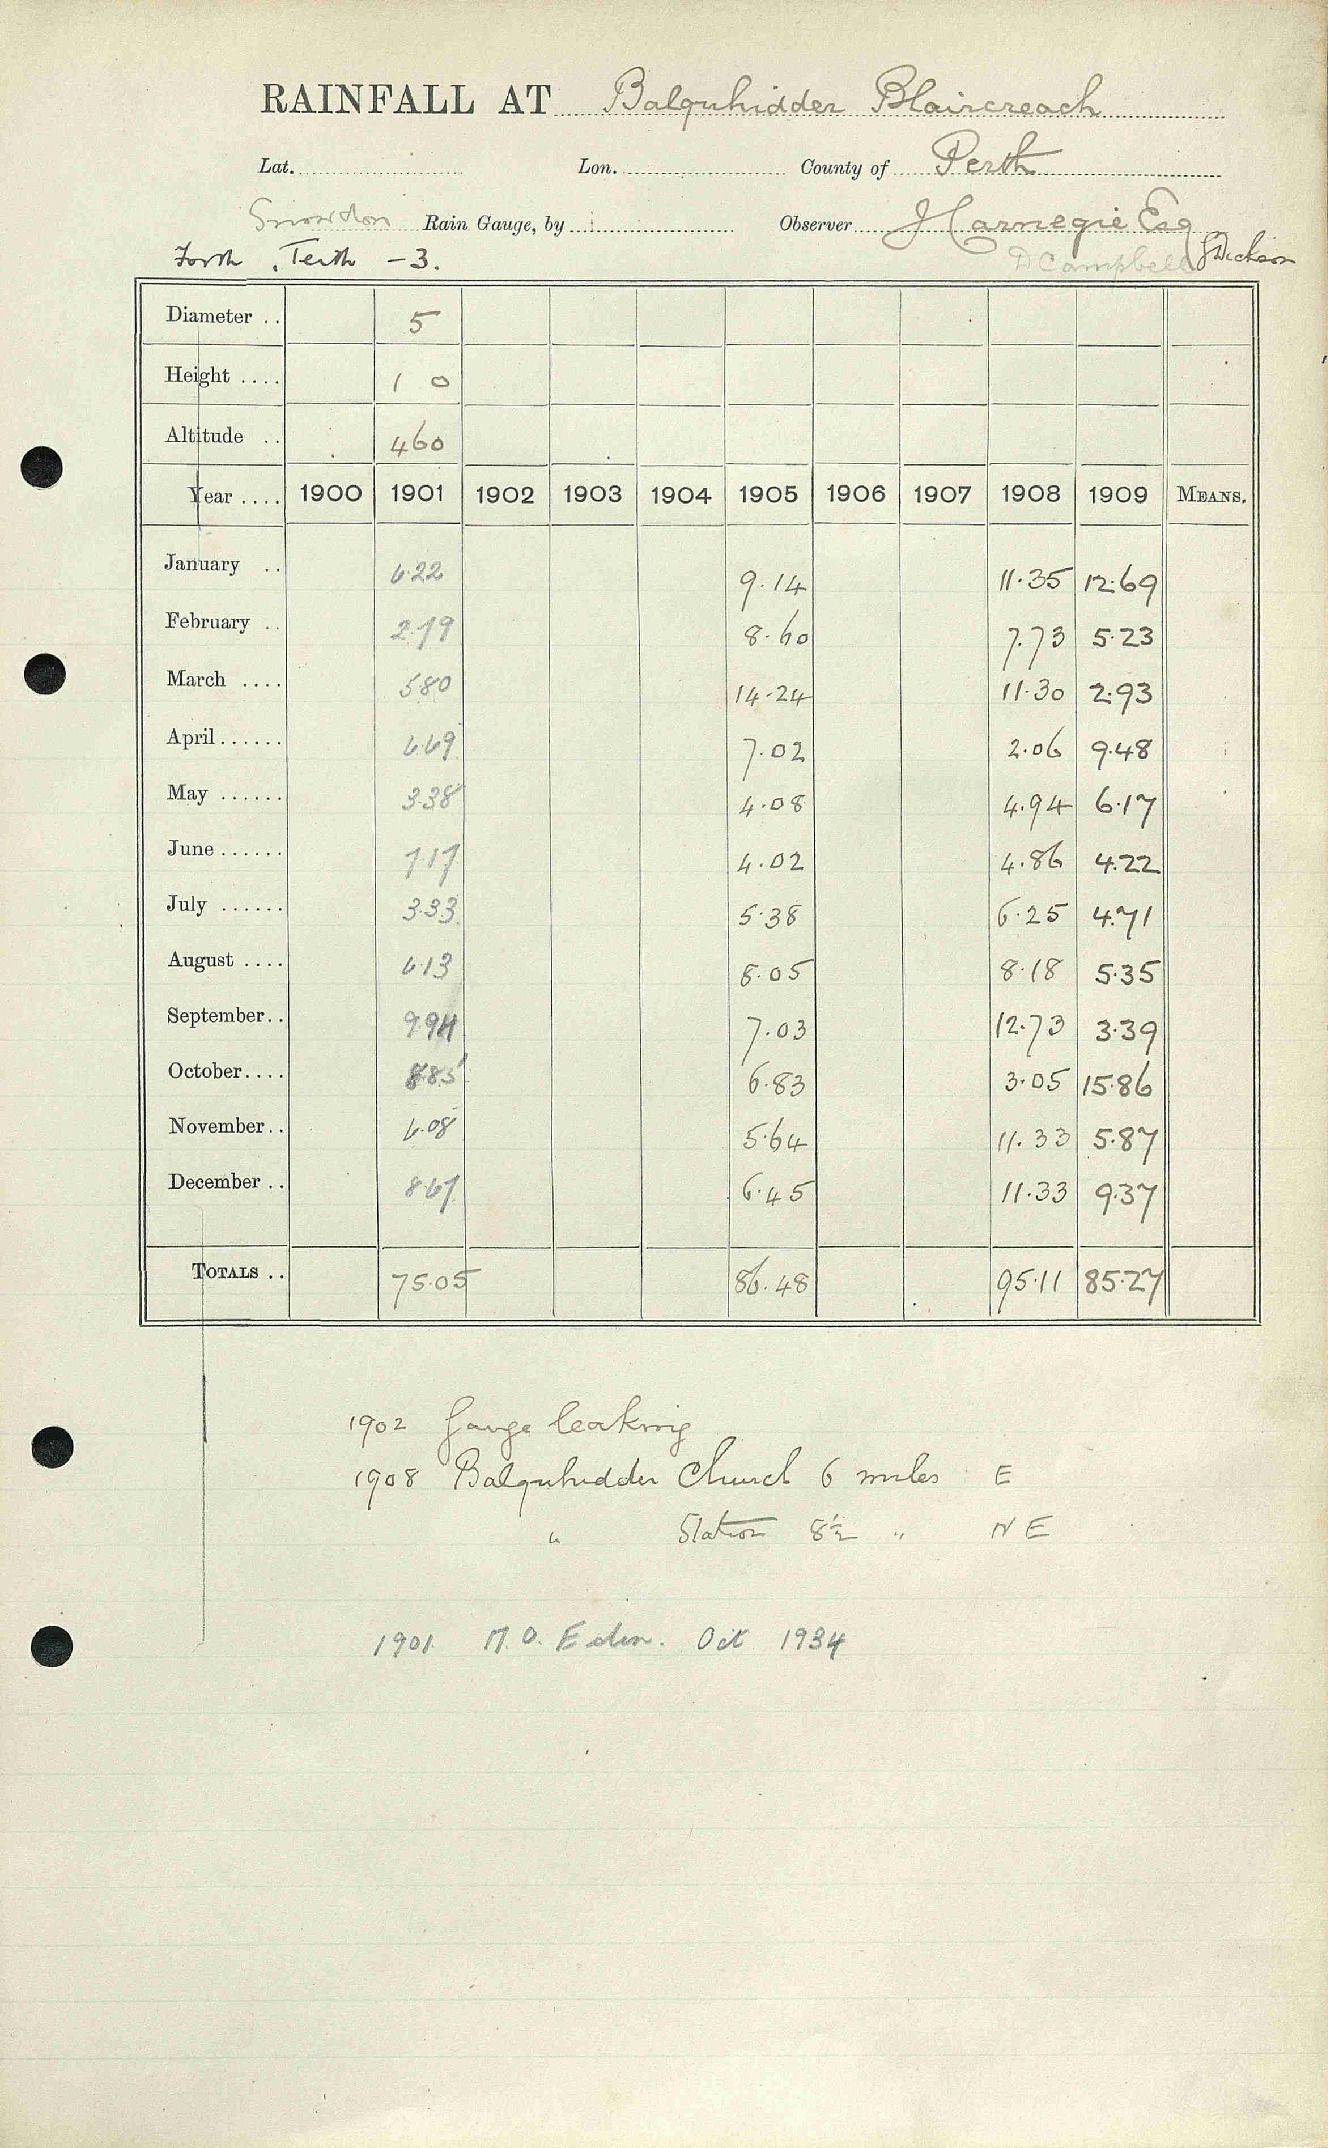 RAINFALL AT Balquhidder Blaircreach
Lat. Lon. County of Perth
Snowdon Rain Gauge, by Observer J Carnegie Esq
Forth, Teith - 3. D Campbell J Dickson
Diameter .. 5
Height .... 1 0
Altitude .. 460
Year .... 1900 1901 1902 1903 1904 1905 1906 1907 1908 1909 MEANS.
January .. 6.22 9.14 11.35 12.69
February .. 2.79 8.60 7.73 5.23
March .... 5.80 14.24 11.30 2.93
April...... 6.69 7.02 2.06 9.48
May ...... 3.38 4.08 4.94 6.17
June...... 7.17 4.02 4.86 4.22
July ...... 3.33 5.38 6.25 4.71
August .... 6.13 8.05 8.18 5.35
September.. 9.94 7.03 12.73 3.39
October.... 8.85 6.83 3.05 15.86
November.. 6.08 5.64 11.33 5.87
December .. 8.67 6.45 11.33 9.37
TOTALS .. 75.05 86.48 95.11 85.27
1902 Gauge leaking
1908 Balquhidder Church 6 miles E
" Station 8½ " NE
1901 M.O. Edin. Oct 1934